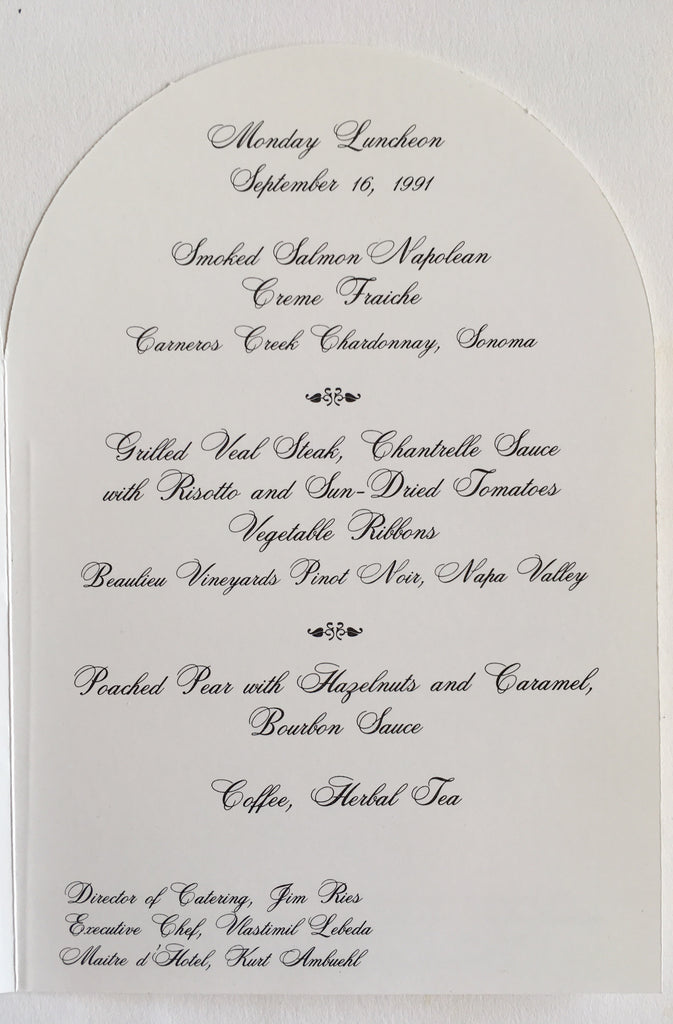 Monday Luncheon
September 16, 1991
Smoked Salmon Napolean
Creme Fraiche
Carneros Creek Chardonnay, Sonoma
Grilled Veal Steak, Chantrelle Sauce
with Risotto and Sun-Dried Tomatoes
Vegetable Ribbons
Beaulieu Vineyards Pinot Noir, Napa Valley
Poached Pear with Hazelnuts and Caramel,
Bourbon Sauce
Coffee, Herbal Tea
Director of Catering, Jim Ries
Executive Chef, Vlastimil Lebeda
Maitre d'Hotel, Kurt Ambuehl